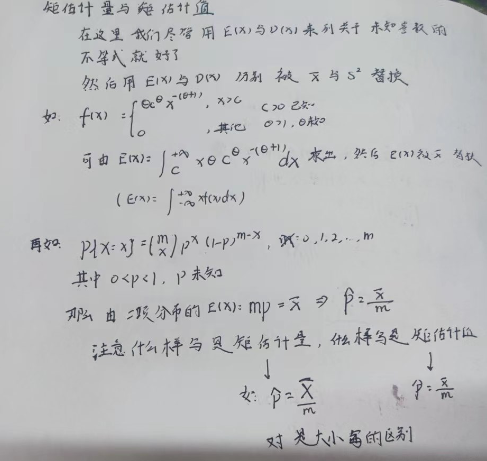 矩估计量与矩估计值
在这里我们尽管用E(X)与D(X)来列关于未知参数的
不等式就好了
然后用E(X)与D(X)分别被x̄与S²替换
如: f(x)={θc^θ x^-(θ+1), x>c   c>0已知
0   , 其他   θ>1, θ未知
可由E(X)=∫_c^{+∞} xθc^θ x^-(θ+1) dx 求出, 然后E(X)被x̄替换
(E(X)=∫_{-∞}^{+∞} xf(x)dx)
再如: P{X=x}=(m x)p^x(1-p)^{m-x}, x=0,1,2,…,m
其中0<p<1, p未知
那么由二项分布的E(X): mp=x̄ ⇒ p̂=x̄/m
注意什么样写是矩估计量, 什么样写是矩估计值
↓ ↓
如: p̂=X̄/m   p̂=x̄/m
对 是大小写的区别